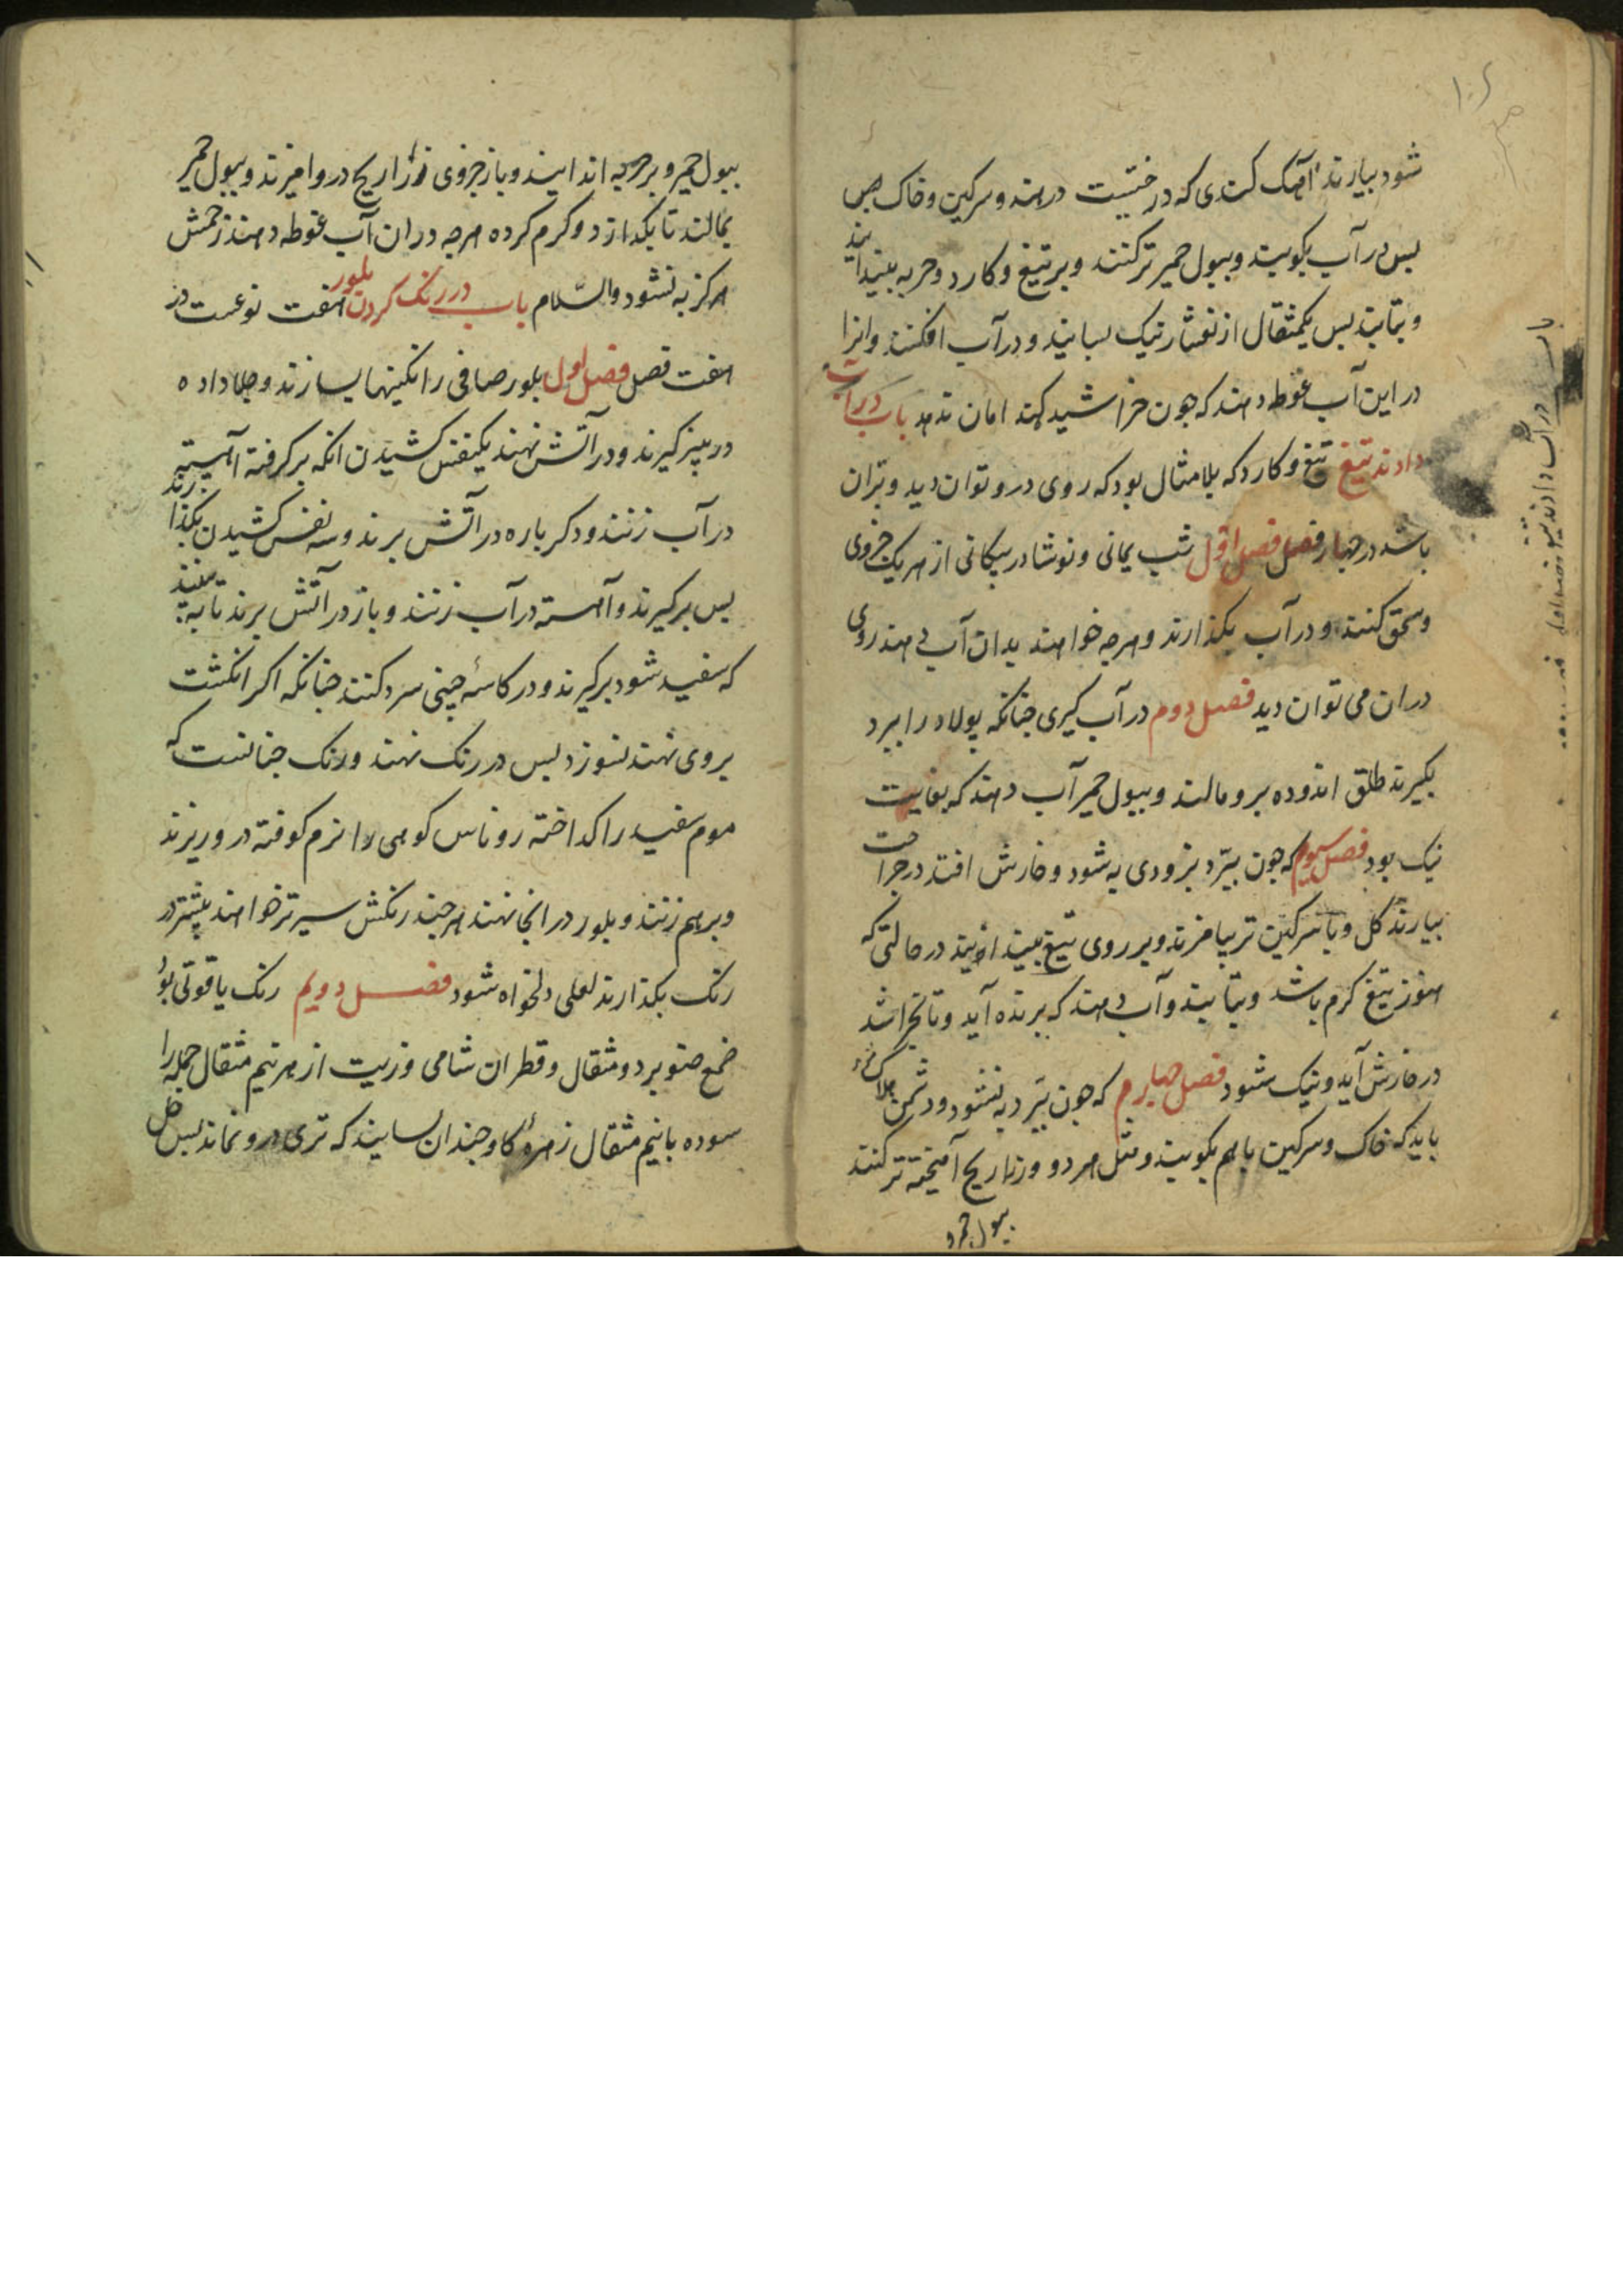 شود بیارند آهک کندی که درختیست در هند و سرکین و خاک بص
بس در آب بکوبند و ببول حمیر تر کنند و بر تیغ و کارد و حربه بیندایند
و بتابند بس یکمثقال از نوشادر نیک بسایند و در آب افکنند و انرا
در این آب غوطه دهند که جون خراشید کند امان ندهد باب در آب
دادند تیغ تیغ و کارد که بلا مثال بود که روی درو توان دید و بران
باشد در جهار فصل فصل اول شب یمانی و نوشادر بیکانی از هر یک جزوی
و سحق کنند و در آب بکذارند و هرجه خواهند بدان آب دهند روی
دران می توان دید فصل دوم در آب کیری جنانکه بولاد را ببرد
بکیرند طلق اندوده برو مالند و ببول حمیر آب دهند که بغایت
نیک بود فصل سیوم که جون ببرد بزودی به شود و خارش افتد در جراحت
بیارند کل و با سرکین تر بیامزند و بر روی تیغ بیندایند در حالتی که
هنوز تیغ کرم باشد و بتابند و آب دهند که برنده آید و تا نخراشد
در خارش آید و نیک شود فصل جهارم که جون ببرد به نشود و دشمن هلاک
باید که خاک و سرکین باهم بکوبند و مثل هر دو وزراریح آمیخته تر کنند
ببول حمیر و
باب در آب دادند تیغ فصل اول
ببول حمیر و بر حربه اندایند و باز جزوی زراریح درو امیزند و ببول حمیر
بمالند تا بکدازد و کرم کرده هرجه دران آب غوطه دهند زخمش
هرکز به نشود والسّلام باب در رنک کردن بلور هفت نوعست در
هفت فصل فصل اول بلور صافی را نکینها بسازند و جلا داده
در سیر کیرند و در آتش نهند یکنفس کشیدن انکه برکرفته آهسته
در آب زنند و دکر باره در آتش برند و سه نفس کشیدن بکذارند
بس برکیرند و آهسته در آب زنند و باز در آتش برند تا به بینند
که سفید شود برکیرند و در کاسه جینی سرد کنند جنانکه اکر انکشت
بروی نهند نسوزد بس در رنک نهند و رنک جنانست که
موم سفید را کداخته روناس کوهی را نرم کوفته در وریزند
و برهم زنند و بلور در انجا نهند هرجند رنکش سیرتر خواهند بیشتر در
رنک بکذارند لعلی دلخواه شود فصل دویم رنک یاقوتی بود
ضمغ صنوبر دو مثقال و قطران شامی و زیت از هر نیم مثقال جمله را
سوده با نیم مثقال زهره کاو جندان بسایند که تری درو نماند بس خل